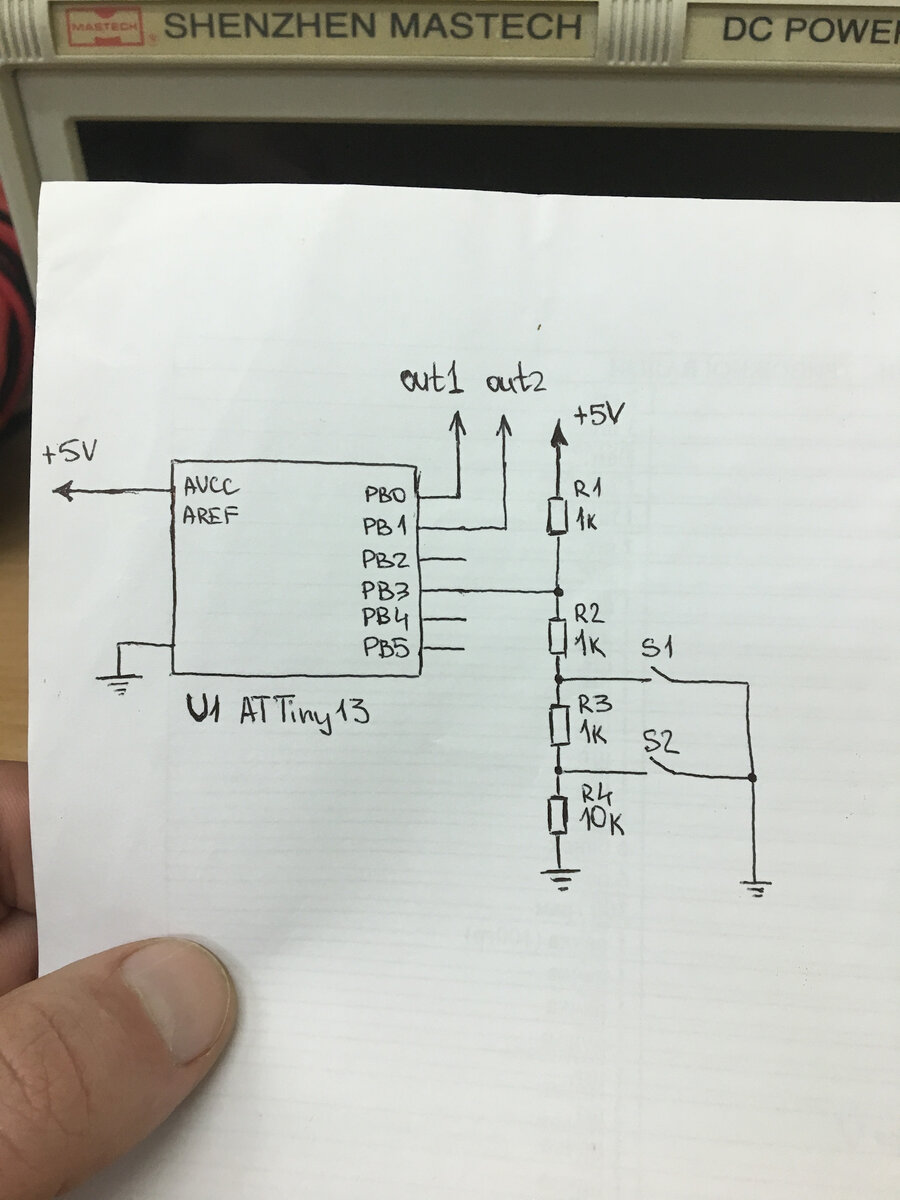 MASTECH® SHENZHEN MASTECH
DC POWER
out1 out2
+5V
+5V
AVCC
AREF
PB0
PB1
PB2
PB3
PB4
PB5
U1 ATTiny13
R1
1K
R2
1K
S1
R3
1K
S2
R4
10K